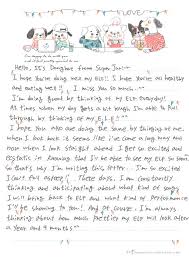 LOVE
Hello, It's Donghae from Super Junior
I hope You're doing well my ELF!! I hope You're all healthy
and eating well!! I miss you so much~~
I'm doing good by thinking of my ELF everyday!!
At times when my days gets a bit tough I'm able to pull
through by thinking of my ELF!!
I hope You also are doing the same by thinking of me.
when I look back it seems like I've come a long way and
now when I look straight ahead I get so excited and
ecstatic in knowing that I'll be able to see my ELF so soon.
So that's why I'm writing this letter~ I'm so excited
I can't fall asleep! These days, I am constantly
thinking and anticipating about what kind of song
I will bring back to ELF and what kind of performance
I'll be showing to you! And of course~ I'm always
thinking about how much prettier my ELF will look after
a Year and 9 months~